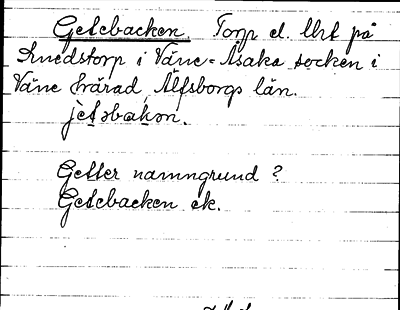 Getebacken. Torp el. lht på
Smedstorp i Väne-Åsaka socken i
Väne härad Älfsborgs län.
jetəbakən.
Getter namngrund?
Getebacken ek.